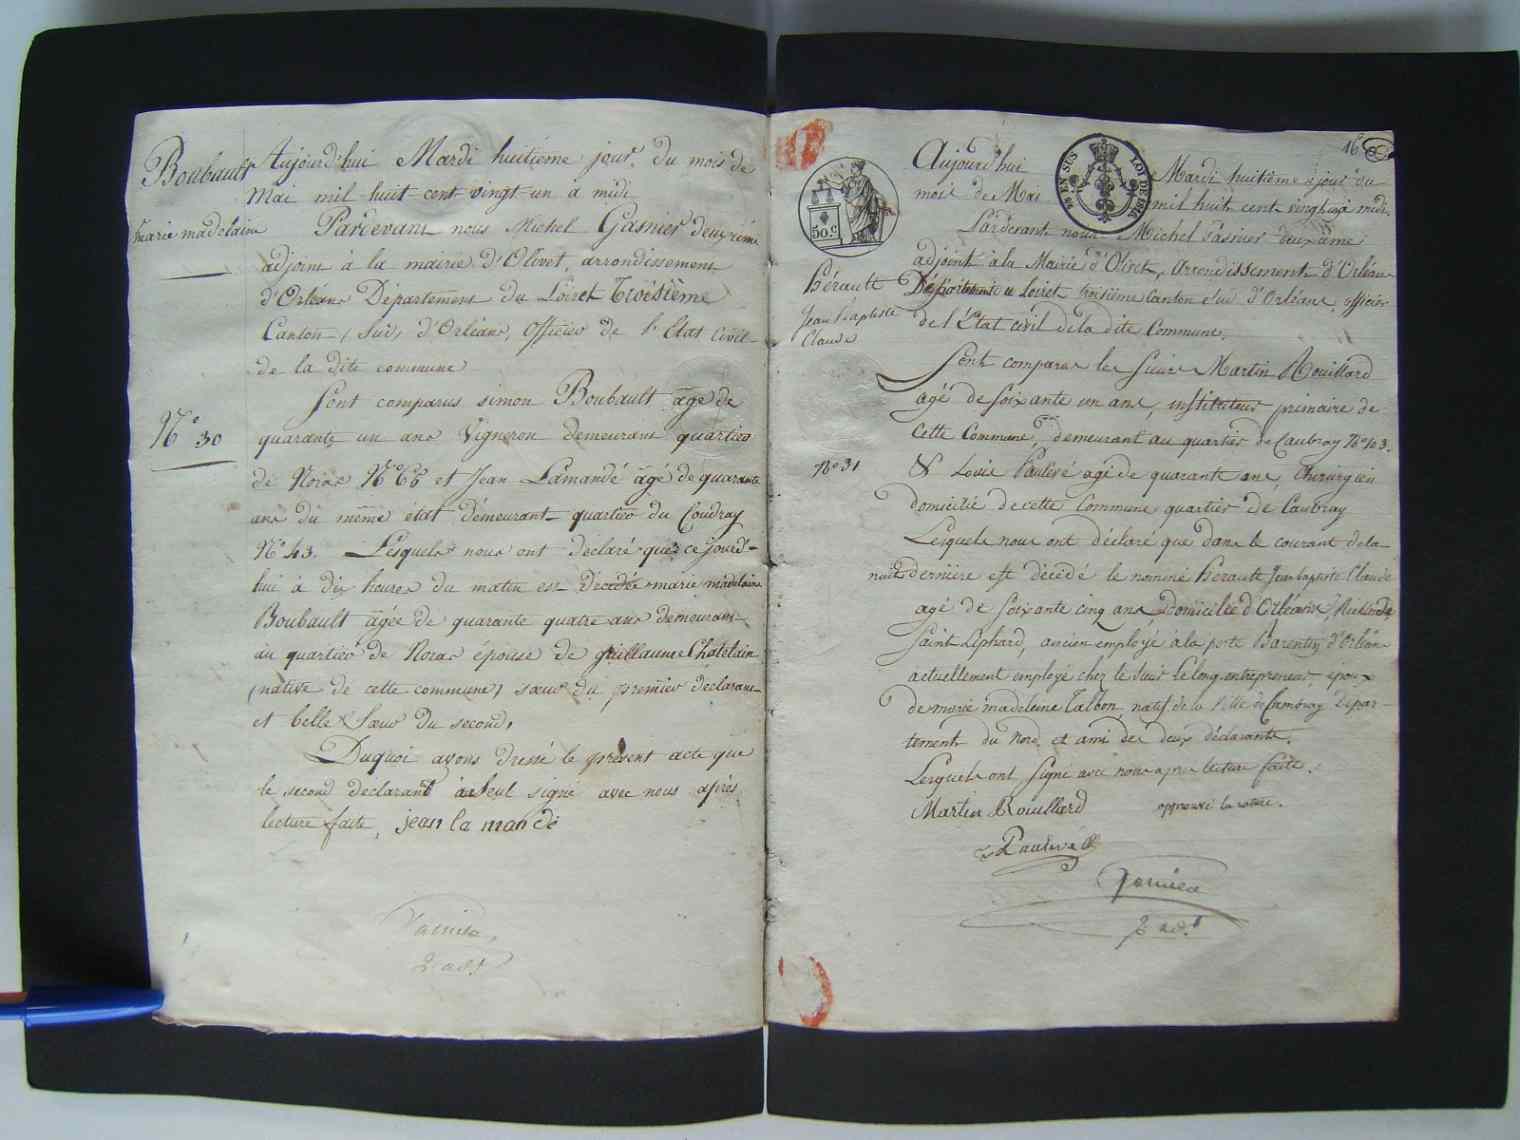 Boubault
marie madelaine
N° 30
Aujourd'hui Mardi huitieme jour du mois de
Mai mil huit cent vingt un a midi
Pardevant nous Michel Gasnier deuxième
adjoint à la mairie d'Olivet, arrondissement
d'Orléans Département du Loiret Troisième
Canton (Sud) d'Orléans, Officier de l'Etat Civil
de la dite commune
Sont comparus simon Boubault agé de
quarante un ans Vigneron demeurant quartier
de Noras N° 66 et Jean Lamandé agé de quarante
ans du même état demeurant quartier du Coudray
N° 43. Lesquels nous ont declaré que ce jourd'
hui à dix heures du matin est décédée marie madelaine
Boubault agée de quarante quatre ans demeurant
au quartier de Noras épouse de guillaume Chatelain
(native de cette commune) sœur du premier déclarant
et belle Sœur du second,
Duquoi avons dressé le présent acte que
le second déclarant a Seul signé avec nous après
lecture faite, jean la mandé
2. adj
16
50 c
EN SUS
LOI DE 1816
Hérault
Jean Baptiste
Claude
N° 31
Aujourd'hui Mardi huitième jour du
mois de Mai mil huit cent vingt un à midi
Pardevant nous Michel Gasnier deuxième
adjoint à la Mairie d'Olivet, Arrondissement d'Orléans
Département du Loiret troisième Canton Sud d'Orléans, officier
de l'Etat civil de la dite Commune.
Sont comparus les Sieurs Martin Rouillard
agé de soixante un ans, instituteur primaire de
cette Commune, demeurant au quartier de Caubray N° 103.
& Louis Paulvé agé de quarante ans, Chirurgien
domicilié de cette Commune quartier de Caubray
Lesquels nous ont déclaré que dans le courant de la
nuit dernière est décédé le nommé Herault Jean baptiste Claude
agé de soixante cinq ans, domicilié d'Orléans,
Saint Liphard, ancien employé à la porte Barentin d'Orléans
actuellement employé chez le Sieur Le long entrepreneur, époux
de marie madeleine Talbon, natif de la Ville de Cambray Dépar-
tement du Nord et ami des deux déclarants.
Lesquels ont Signé avec nous après lecture faite.
Martin Rouillard approuvé la rature.
Paulvé
Gasnier
2 adj.